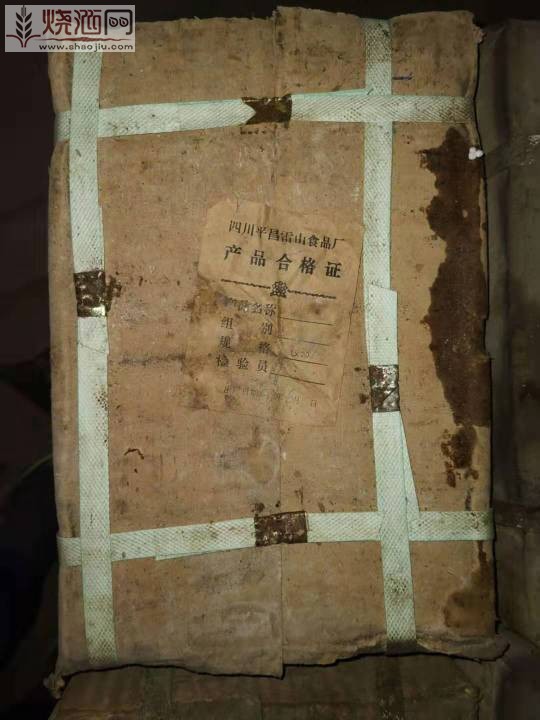 烧酒网
www.shaojiu.com
四川平昌雷山食品厂
产品合格证
产品名称
组别
规格
检验员